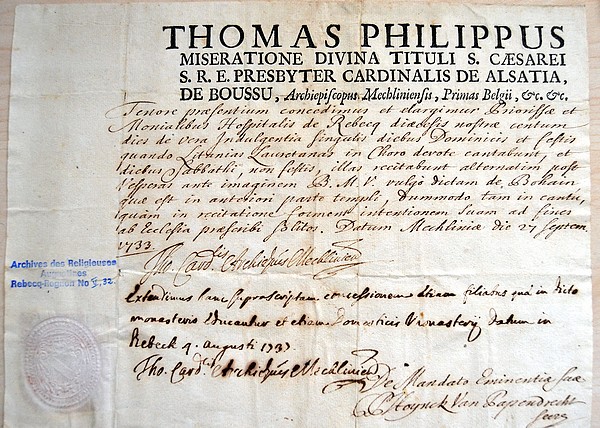 THOMAS PHILIPPUS
MISERATIONE DIVINA TITULI S. CÆSAREI
S. R. E. PRESBYTER CARDINALIS DE ALSATIA,
DE BOUSSU, Archiepiscopus Mechliniensis, Primas Belgii, &c. &c.
Tenore præsentium concedimus et elargimur Priorissæ et
Monialibus Hospitalis de Rebecq diæcesis nostræ centum
dies de vera Indulgentia singulis diebus Dominicis et festis
quando Litanias Lauretanas in Choro devote cantabunt, et
diebus Sabbathi, non festis, illas recitabunt alternatim post
Vesperas ante imaginem B. M. V. vulgò dictam de Bohain
quæ est in anteriori parte templi, dummodo tam in cantu,
quam in recitatione forment intentionem suam ad fines
ab Ecclesia præscribi solitos. Datum Mechliniæ die 27 septem.
1733.
Tho. Card.lis Archiepūs Mechlinien
Archives des Religieuses
Augustines
Rebecq-Rognon No
Extendimus hanc suprascriptam concessionem etiam filiabus quæ in dicto
monasterio educantur et etiam domesticis Monasterij datum in
Rebeck 4. augusti 1737
Tho. Card.lis Archiepūs Mechlinien
De Mandato Eminentiæ suæ
C Hoynck Van Papendrecht
secrs